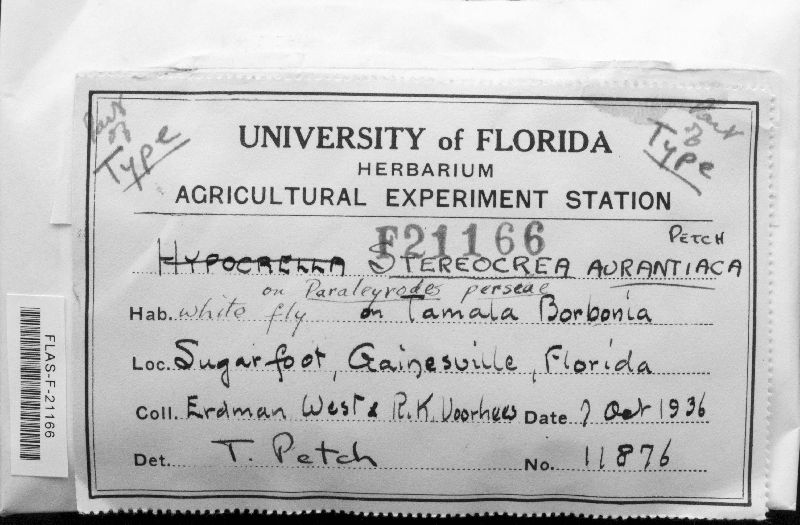 Part of Type
Part of Type
UNIVERSITY of FLORIDA
HERBARIUM
AGRICULTURAL EXPERIMENT STATION
F21166
PETCH
HYPOCRELLA STEREOCREA AURANTIACA
on Paraleyrodes perseae
Hab. white fly on Tamala Borbonia
Loc. Sugarfoot, Gainesville, Florida
Coll. Erdman West & R.K. Voorhees Date 7 Oct 1936
Det. T. Petch No. 11876
FLAS-F-21166